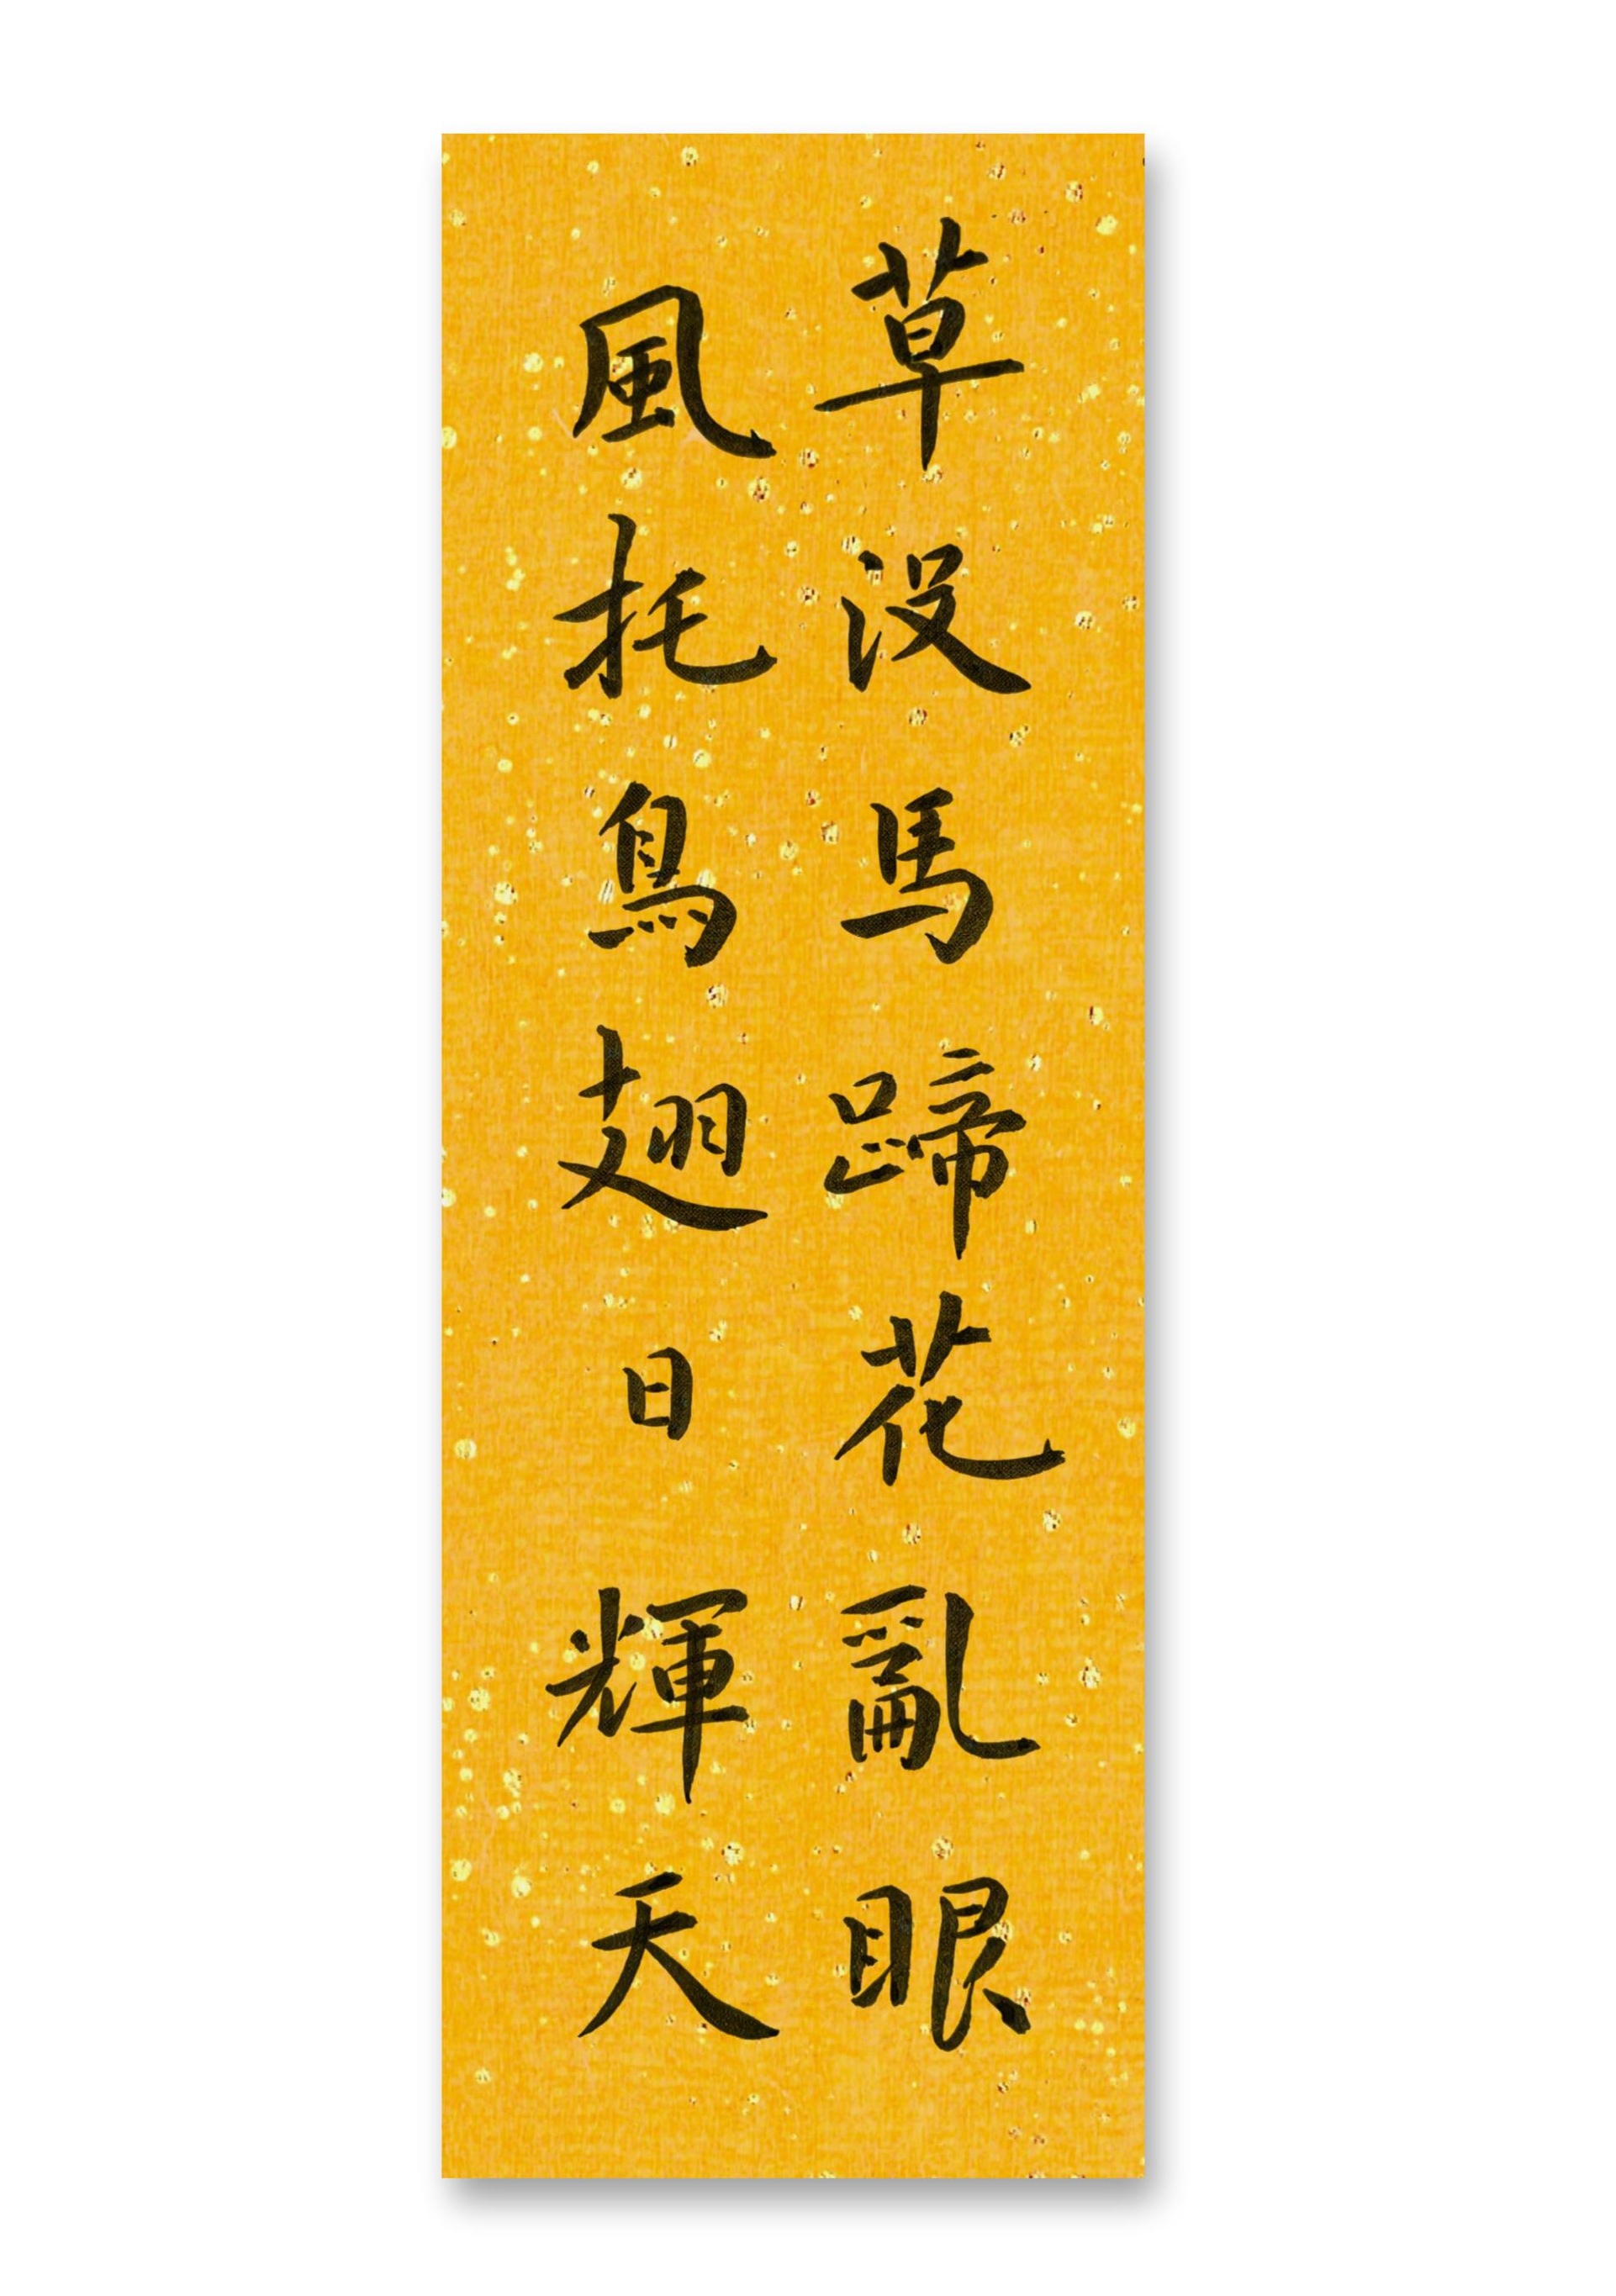 草没馬蹄花亂眼
風托鳥翅日輝天